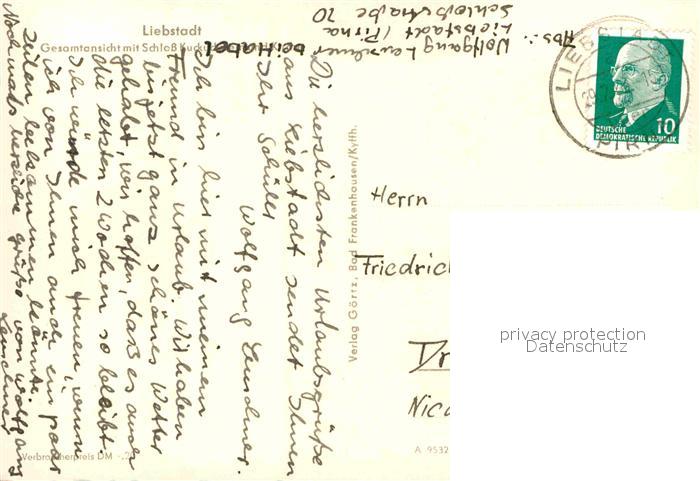 Liebstadt
Gesamtansicht mit Schloß Kuckuckstein
Abs.:
Wolfgang Leuschner
Liebstadt (Pirna
Schloßstraße 70
LIEBSTADT
PIRNA
10
DEUTSCHE
DEMOKRATISCHE REPUBLIK
Die herzlichsten Urlaubsgrüße
aus Liebstadt sendet Ihnen
Ihr Schüler
Wolfgang Leuschner.
Ich bin hier mit meinem
Freund in Urlaub. Wir haben
bis jetzt ganz schönes Wetter
gehabt, wir hoffen, daß es auch
die letzten 2 Wochen so bleibt.
Ich würde mich freuen, wenn
ich von Ihnen auch ein paar
Zeilen bekommen könnte.
Nochmals herzliche Grüße von Wolfgang
Leuschner
Verlag Görtz, Bad Frankenhausen/Kyffh.
Herrn
Friedrich
Dr
Nic
privacy protection
Datenschutz
Verbraucherpreis DM -.2
A 9532